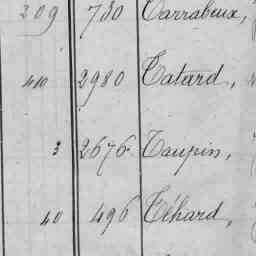 209 730 Carrabeux,
410 2980 Catard,
3 2676 Caupin,
40 496 Céhard,